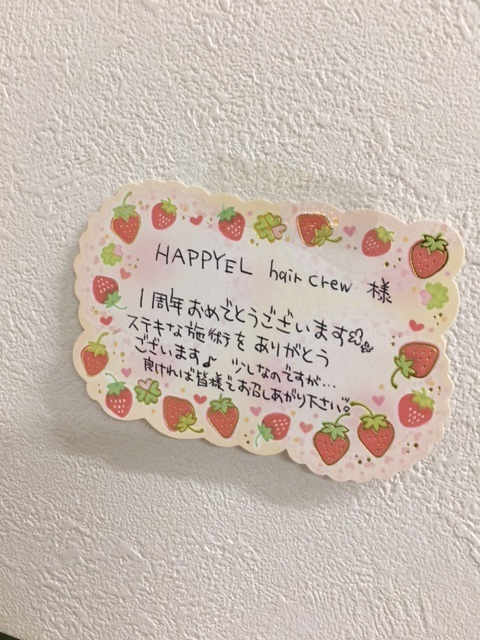 HAPPYEL hair crew 様
1周年おめでとうございます
ステキな施術をありがとう
ございます♪ 少しなのですが…
良ければ皆様でお召しあがり下さい。